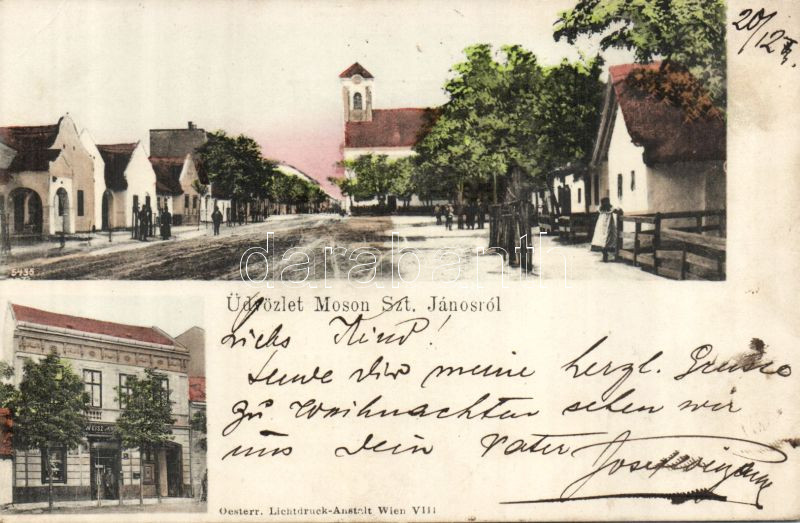 20/12
5435
darabanth
Üdvözlet Moson Szt. Jánosról
Liebs Kind!
Sende Dir meine herzl. Grüsse
zu Weihnachten sehen wir
uns Dein Vater
Josef
WEISZ
Oesterr. Lichtdruck-Anstalt Wien VIII